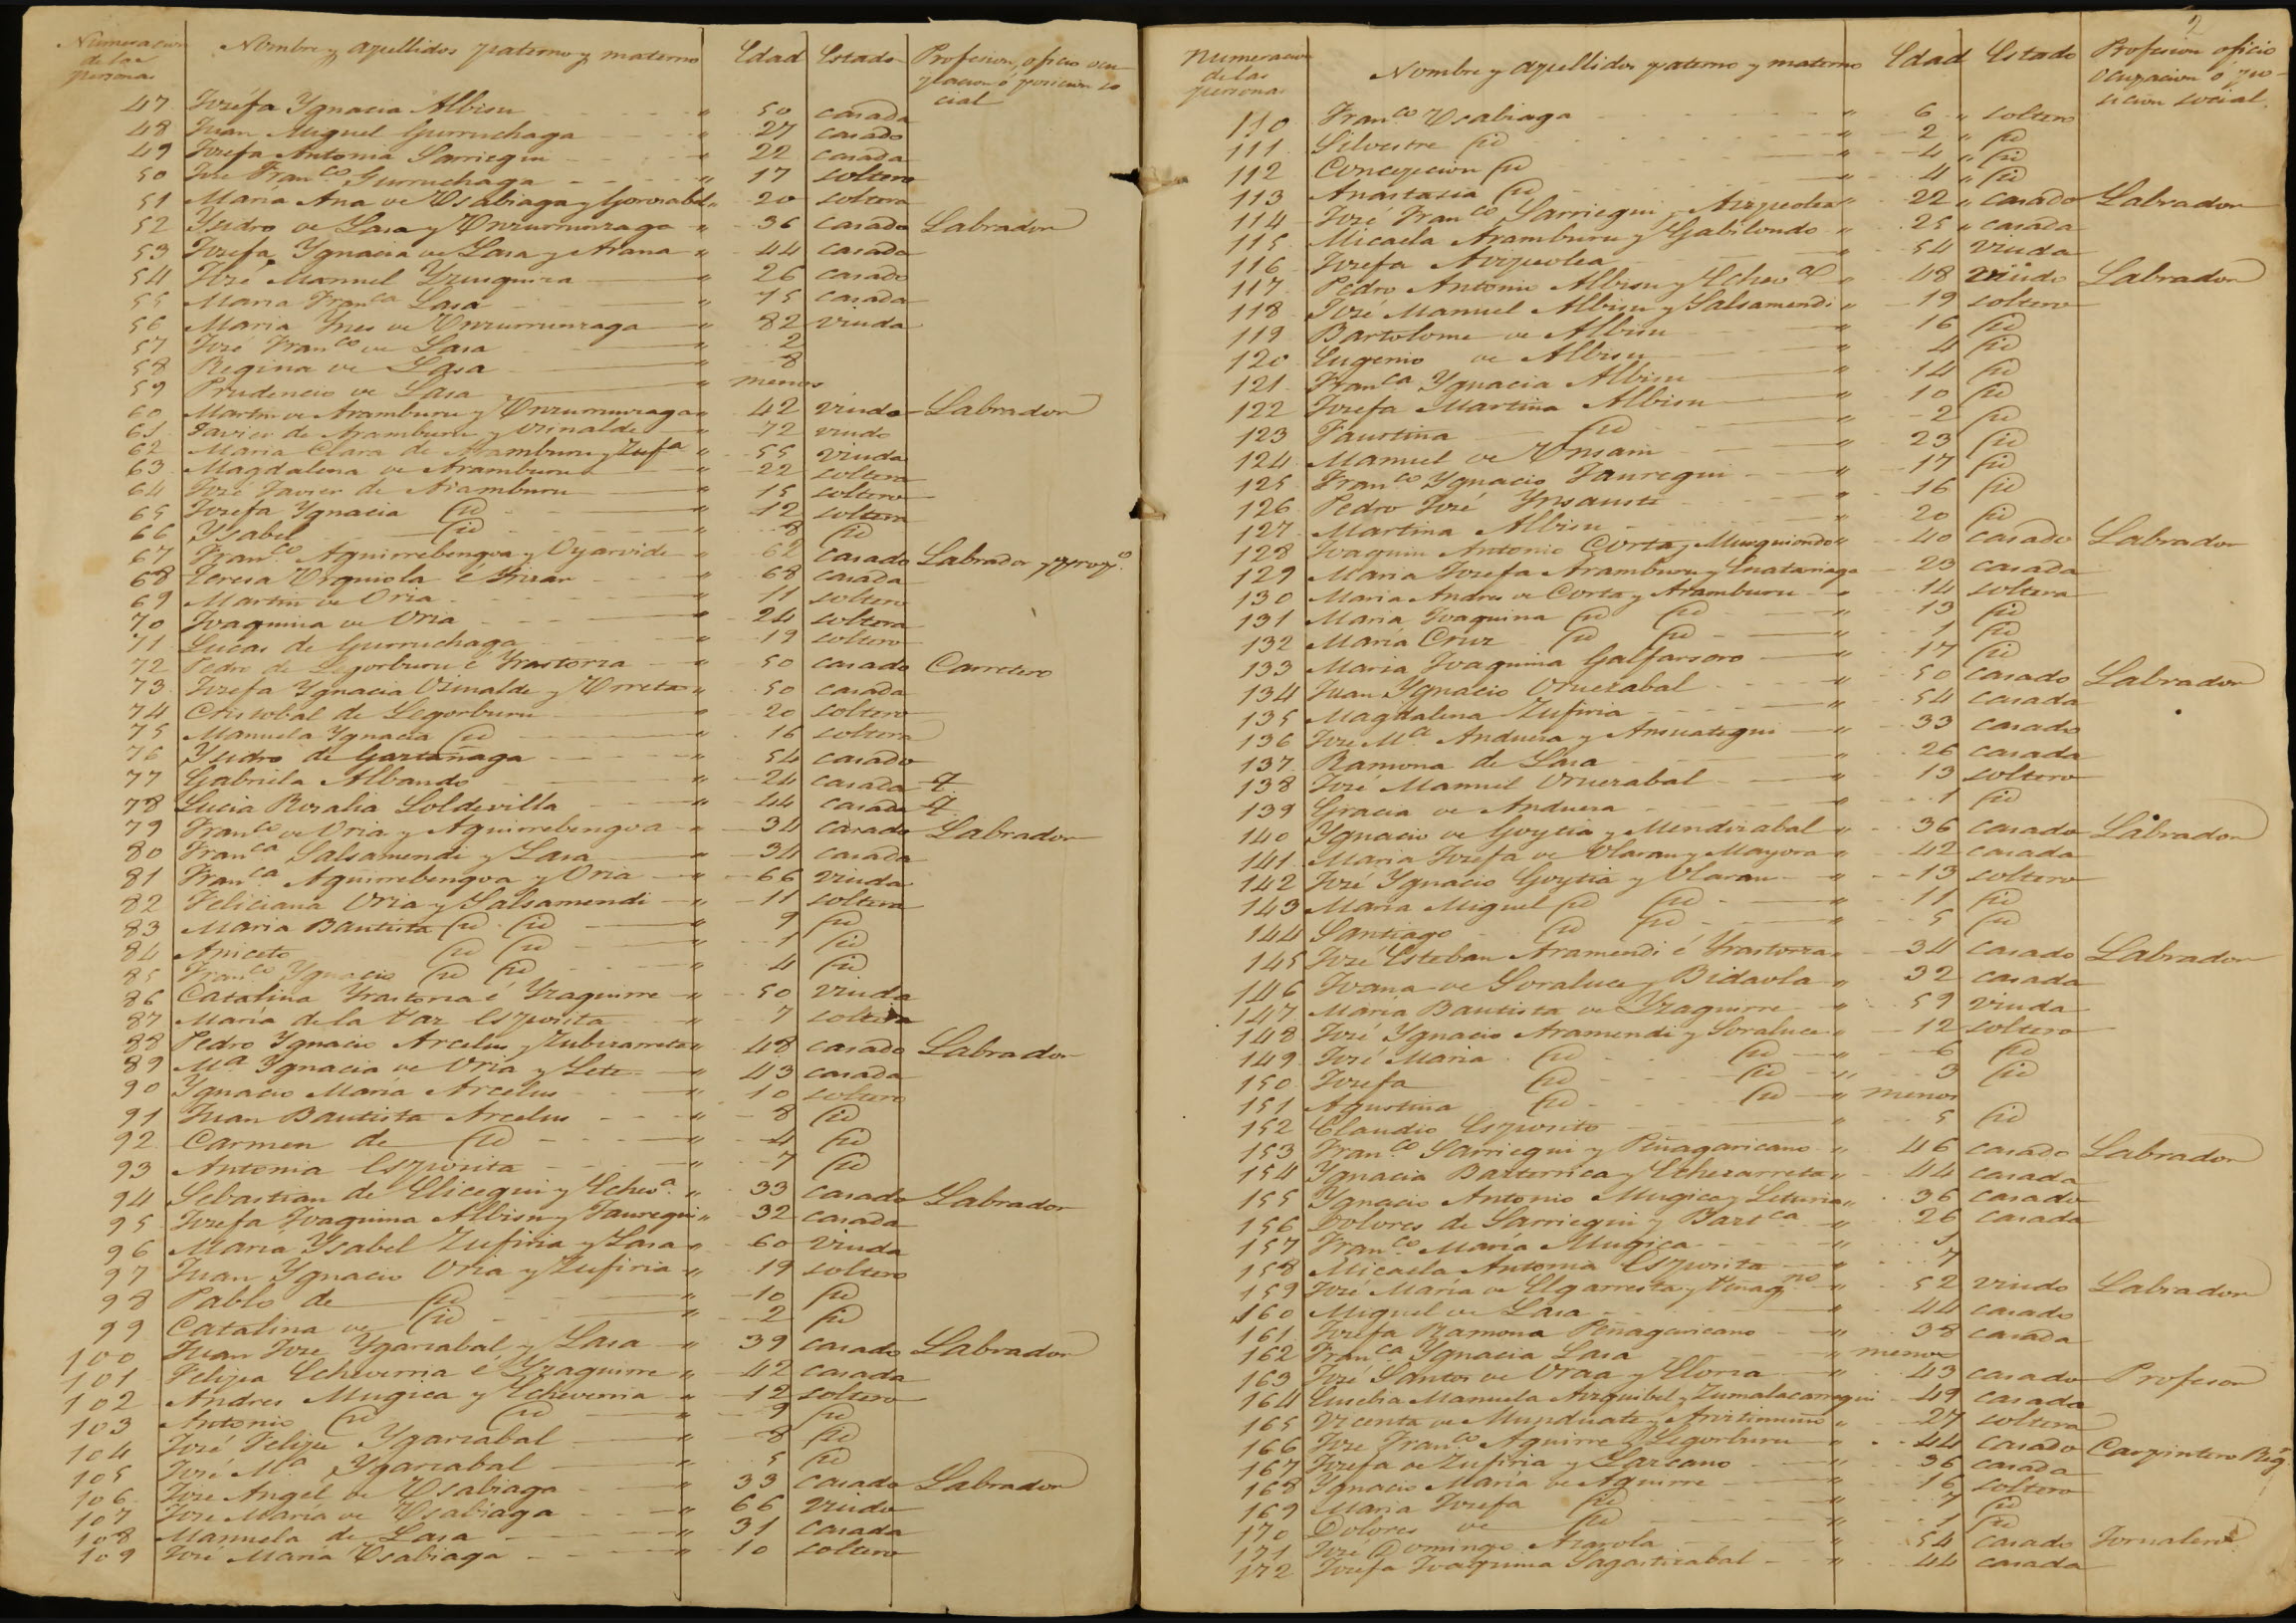 Numeracion de las personas Nombre y apellidos paterno y materno Edad Estado Profesion, oficio ocupacion ó posicion social
47 Josefa Ygnacia Albisu " 50 casada
48 Juan Miguel Gurruchaga " 27 casado
49 Josefa Antonia Sarriegui " 22 casada
50 Jose Franco Gurruchaga " 17 soltero
51 Maria Ana de Usabiaga y Gorosabel " 20 soltera
52 Ysidro de Lasa y Unzurrunzaga " 36 casado Labrador
53 Josefa Ygnacia de Lasa y Arana " 44 casada
54 José Manuel Yzusquiza " 26 casado
55 Maria Franca Lasa " 75 casada
56 Maria Ynes de Unzurrunzaga " 82 viuda
57 José Franco de Lasa " 2
58 Regina de Lasa " 8
59 Prudencio de Lasa " menos
60 Martin de Aramburu y Unzurrunzaga " 42 viudo Labrador
61 Javier de Aramburu y Orinalde " 72 viudo
62 Maria Clara de Aramburu y Zufa " 55 viuda
63 Magdalena de Aramburu " 22 soltera
64 José Javier de Aramburu " 15 soltero
65 Josefa Ygnacia id " 12 soltera
66 Ysabel id " 8 id
67 Franco Aguirrebengoa y Oyarvide " 62 casado Labrador y propo
68 Teresa Urquiola é Yrizar " 68 casada
69 Martin de Oria " 11 soltero
70 Joaquina de Oria " 24 soltera
71 Lucas de Gurruchaga " 19 soltero
72 Pedro de Legorburu é Yrastorza " 50 casado Carretero
73 Josefa Ygnacia Orinalde y Urreta " 50 casada
74 Cristobal de Legorburu " 20 soltero
75 Manuela Ygnacia id " 16 soltera
76 Ysidro de Gaztañaga " 54 casado
77 Gabriela Albando " 24 casada
78 Lucia Rosalia Soldevilla " 44 casada
79 Franco de Oria y Aguirrebengoa " 34 casado Labrador
80 Franca Salsamendi y Lasa " 34 casada
81 Franca Aguirrebengoa y Oria " 66 viuda
82 Feliciana Oria y Salsamendi " 11 soltera
83 Maria Bautista id id " 9 id
84 Aniceto id id " 1 id
85 Franco Ygnacio id id " 4 id
86 Catalina Yrastorza é Yzaguirre " 50 viuda
87 María de la Paz Esposita " 7 soltera
88 Pedro Ygnacio Arcelus y Zubizarreta " 48 casado Labrador
89 Ma Ygnacia de Oria y Lete " 43 casada
90 Ygnacio María Arcelus " 10 soltero
91 Juan Bautista Arcelus " 8 id
92 Carmen de id " 4 id
93 Antonia Esposita " 7 id
94 Sebastian de Elicegui y Echeva " 33 casado Labrador
95 Josefa Joaquina Albisu y Jauregui " 32 casada
96 María Ysabel Zufiria y Lasa " 60 viuda
97 Juan Ygnacio Oria y Zufiria " 19 soltero
98 Pablo de id " 10 id
99 Catalina de id " 2 id
100 Juan Jose Ygarzabal y Lasa " 39 casado Labrador
101 Felipa Echeverria é Yzaguirre " 42 casada
102 Andres Mugica y Echeverria " 12 soltero
103 Antonio id id " 9 id
104 José Felipe Ygarzabal " 8 id
105 José Ma Ygarzabal " 5 id
106 Jose Angel de Usabiaga " 33 casado Labrador
107 Jose María de Usabiaga " 66 viudo
108 Manuela de Lasa " 31 casada
109 José María Usabiaga " 10 soltero
2
Numeracion de las personas Nombre y apellidos paterno y materno Edad Estado Profesion oficio ocupacion ó posicion social
110 Franco Usabiaga " 6 " soltero
111 Silvestre id " 2 " id
112 Concepcion id " 4 " id
113 Anastasia id " 4 " id
114 José Franco Sarriegui y Azpeolea " 22 " casado Labrador
115 Micaela Aramburu y Gabilondo " 25 " casada
116 Josefa Azpeolea " 54 viuda
117 Pedro Antonio Albisu y Echeva " 48 viudo Labrador
118 José Manuel Albisu y Salsamendi " 19 soltero
119 Bartolome de Albisu " 16 id
120 Eugenio de Albisu " 4 id
121 Franca Ygnacia Albisu " 14 id
122 Josefa Martina Albisu " 10 id
123 Faustina id " 2 id
124 Manuel de Unsain " 23 id
125 Franco Ygnacio Jauregui " 17 id
126 Pedro José Ynsausti " 16 id
127 Martina Albisu " 20 id
128 Joaquin Antonio Corta y Murguiondo " 40 casado Labrador
129 Maria Josefa Aramburu y Guatariaga 23 casada
130 Maria Andres de Corta y Aramburu " 14 soltera
131 Maria Joaquina id id " 13 id
132 María Cruz id id " 1 id
133 Maria Joaquina Galfarsoro " 17 id
134 Juan Ygnacio Oruezabal " 50 casado Labrador
135 Magdalena Zufiria " 54 casada
136 Jose Ma Anduesa y Amuategui " 33 casado
137 Ramona de Lasa " 26 casada
138 José Manuel Oruezabal " 13 soltero
139 Gracia de Anduesa " 1 id
140 Ygnacio de Goytia y Mendizabal " 36 casado Labrador
141 Maria Josefa de Olaran y Mayora " 42 casada
142 José Ygnacio Goytia y Olaran " 13 soltero
143 Maria Miguel id id " 11 id
144 Santiago id id " 5 id
145 José Esteban Aramendi é Yrastorza " 34 casado Labrador
146 Juana de Soraluce y Bidaola " 32 casada
147 María Bautista de Yzaguirre " 59 viuda
148 José Ygnacio Aramendi y Soraluce " 12 soltero
149 José Maria id id " 6 id
150 Josefa id id " 3 id
151 Agustina id id " menos
152 Claudio Esposito 5 id
153 Franco Sarriegui y Peñagaricano " 46 casado Labrador
154 Ygnacia Basterrica y Echezarreta " 44 casada
155 Ygnacio Antonio Mugica y Leturia " 36 casado
156 Dolores de Sarriegui y Bastca " 26 casada
157 Franco María Mugica 3
158 Micaela Antonia Esposita " 7
159 José María de Elgarresta y Peñagno " 52 viudo Labrador
160 Miguel de Lasa " 44 casado
161 Josefa Ramona Peñagaricano " 38 casada
162 Franca Ygnacia Lasa " menor
163 José Santos de Oraa y Elorza " 43 casado Profesor
164 Eusebia Manuela Aizquibel y Zumalacarregui 49 casada
165 Vicenta de Munduate y Aristimuño " 27 soltera
166 Jose Franco Aguirre y Legorburu " 44 casado Carpintero
167 Josefa de Zufiria y Lazcano " 36 casada
168 Ygnacio María de Aguirre " 16 soltero
169 Maria Josefa id " 7 id
170 Dolores de id " 1 id
171 José Domingo Azarola " 54 casado Jornalero
172 Josefa Joaquina Sagastizabal " 44 casada